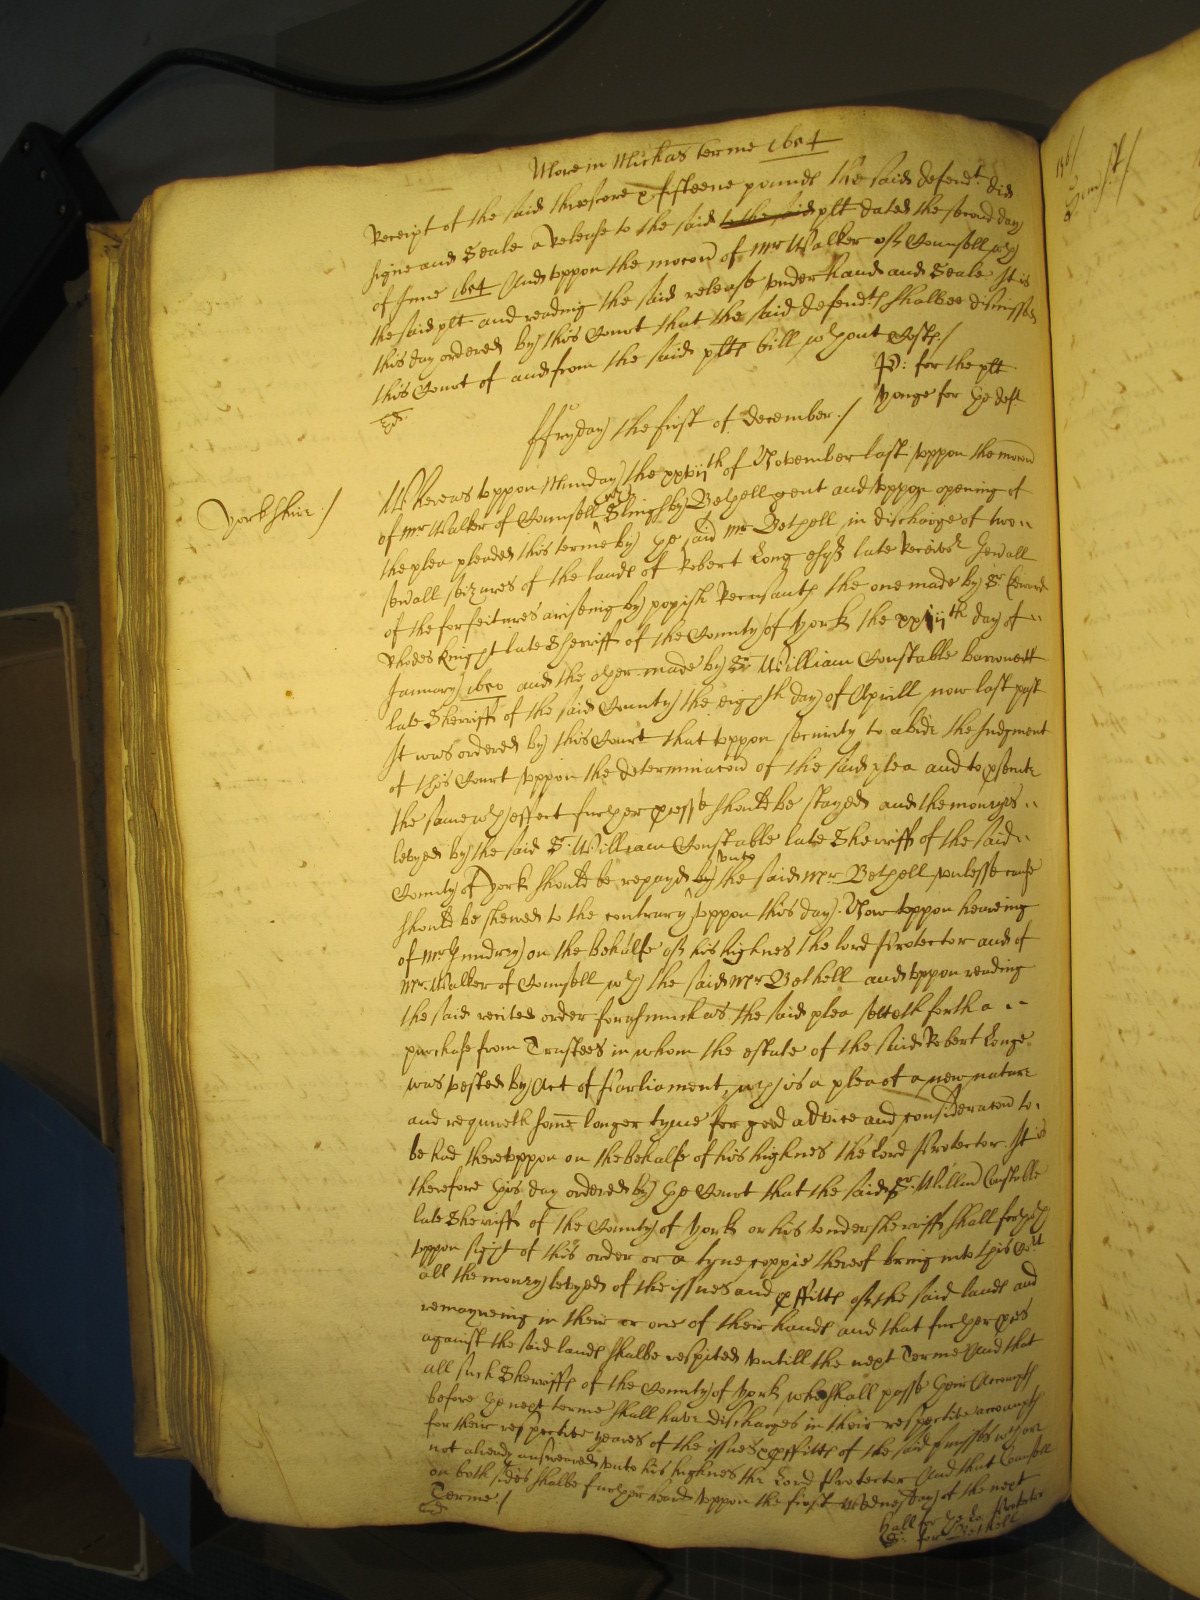 More in Michas terme 1654
Receipt of the said threescore & fifteene pounds the said defendt. did
signe and Seale a Release to the said to the said plt dated the second day
of June 1654 And uppon the mocon of Mr Walker of Counsell wth
the said plt and reading the said release under hand and Seale It is
this day ordered by this Court that the said defendts shalbee dismissed
this Court of and from the said plts bill wthout Costs /
for the plt
yonge for the deft
ffryday the first of december ./
Yorkshire ./
Whereas uppon Munday the xxvijth of November last uppon the mocon
of Mr Walker of Counsell wth Slingsby Bethell gent and uppon opening of
the plea pleaded this terme by the said Mr Bethell in discharge of two
sevall seizures of the lands of Robert Long esqr late Receivor Genall
of the forfeitures ariseing by popish Recusants the one made by Sr Edward
Rhodes knight late Sherriff of the County of York the day of
January 1650 and the other made by Sr William Constable barronett
late Sherriff of the said County the eighth day of Aprill now last past
It was ordered by this Court that uppon security to abide the Judgment
of this Court uppon the determinacon of the said plea and to psecute
the same wth effect further pcesse should be stayed and the moneyes
levyed by the said Sr William Constable late Sherriff of the said
County of York should be repayd by unto the said Mr Bethell unlesse cause
should be shewed to the contrary uppon this day. Now uppon heareing
of Mr on the behalfe of his highnes the lord Protector and of
Mr Walker of Counsell wth the said Mr Bethell and uppon reading
the said recited order forasmuch as the said plea setteth forth a
purchase from Trustees in whom the estate of the said Robert Longe
was vested by Act of Parliament, wch is a plea of a new nature
and requireth some longer tyme for good advice and consideracon to
be had thereuppon on the behalfe of his highnes the Lord Protector. It is
therefore this day ordered by the Court that the said Sr. Willm Constable
late Sherriff of the County of York or his undersherriff shall forthwth
uppon sight of this order or a true coppie thereof bring into this Cort
all the money levyed of the issues and pffitts of the said lands and
remayneing in their or one of their hands and that further pces
against the said lands shalbe respited untill the next Terme And that
all such Sherriffs of the County of York who shall passe their Accompts
before the next terme shall have discharges in their respective accompts
for their respective yeares of the issues & pffitts of the said pmisses wch are
not already answeared unto his highnes the Lord Protector And that Counsell
on both sides shalbe further heard uppon the first Wednesday of the next
Terme ./
Hall for the Lo: Protector
for Bethell